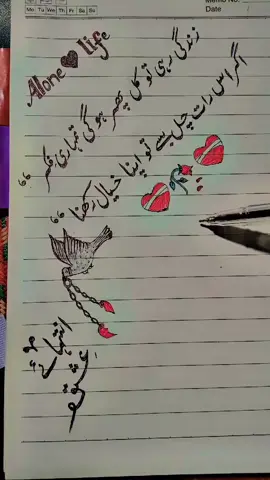 Memo No.
Mo Tu We Th Fr Sa Su
Date
Alone life
زندگی رہی تو کل پھر ہو گی تمہاری فکر
اگر اس رات چل بسے تو اپنا خیال رکھنا
انتہائے
عشق